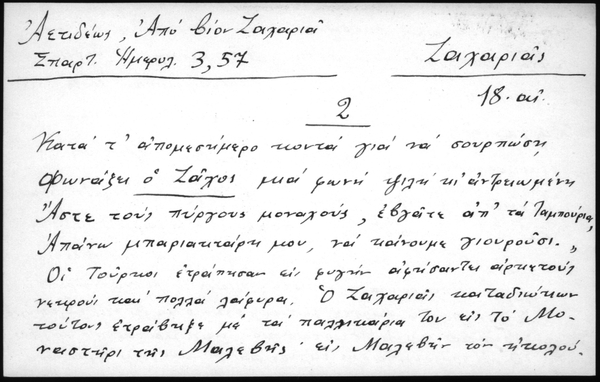 Ἀετιδέως, Ἀπό βίον Ζαχαριᾶ
Σπαρτ. Ἡμερολ. 3, 57
Ζαχαριᾶς
18. αἰ.
2
Κατά τ' ἀπομεσήμερο κοντά γιά νά σουρπώση
Φωνάξει ὁ Ζᾶχος μιά φωνή ψιλή κι' ἀντρειωμένη
Ἄστε τούς πύργους μοναχούς, ἐβγᾶτε ἀπ' τά ταμπούρια,
Ἀπάνω μπαριακτάρη μου, νά κάνουμε γιουροῦσι."
Οἱ Τοῦρκοι ἐτράπησαν εἰς φυγήν ἀφήσαντες ἀρκετούς
νεκρούς καί πολλά λάφυρα. Ὁ Ζαχαριᾶς καταδιώκων
τούτους ἐτράβηξε μέ τά παλληκάρια του εἰς τό Μο-
ναστήρι τῆς Μαλεβῆς· εἰς Μαλεβήν τόν ἠκολού-